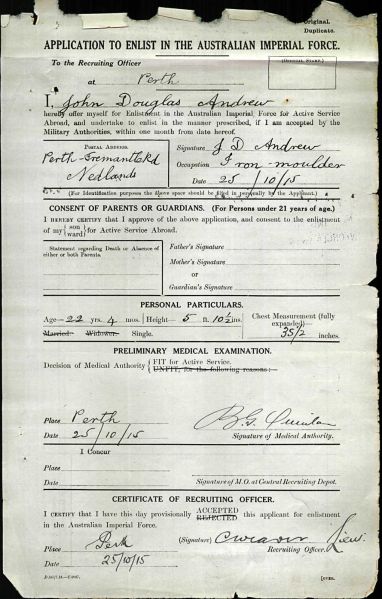 Original.
Duplicate.
APPLICATION TO ENLIST IN THE AUSTRALIAN IMPERIAL FORCE.
To the Recruiting Officer
at Perth
(OFFICIAL STAMP.)
I, John Douglas Andrew
hereby offer myself for Enlistment in the Australian Imperial Force for Active Service
Abroad, and undertake to enlist in the manner prescribed, if I am accepted by the
Military Authorities, within one month from date hereof.
POSTAL ADDRESS.
Perth Fremantle Rd
Nedlands
Signature J D Andrew
Occupation Iron moulder
Date 25/10/15
(For Identification purposes the above space should be filled in personally by the Applicant.)
CONSENT OF PARENTS OR GUARDIANS. (For Persons under 21 years of age.)
I HEREBY CERTIFY that I approve of the above application, and consent to the enlistment
of my {son ward} for Active Service Abroad.
Statement regarding Death or Absence of
either or both Parents.
Father's Signature
Mother's Signature
or
Guardian's Signature
PERSONAL PARTICULARS.
Age—22 yrs. 4 mos. Height— 5 ft. 10½ ins.
Chest Measurement (fully
expanded)—
Married. Widower. Single.
35/2 inches.
PRELIMINARY MEDICAL EXAMINATION.
Decision of Medical Authority { FIT for Active Service.
UNFIT, for the following reasons:—
Place Perth
Date 25/10/15
Signature of Medical Authority.
I Concur
Place
Date
Signature of M.O. at Central Recruiting Depot.
CERTIFICATE OF RECRUITING OFFICER.
I CERTIFY that I have this day provisionally ACCEPTED REJECTED this applicant for enlistment
in the Australian Imperial Force.
Place Perth
(Signature) C Weaver Lieu.
Recruiting Officer.
Date 25/10/15
[OVER.